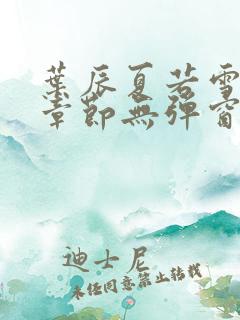 葉辰夏若雪
章節無彈窗
迪士尼
未經同意禁止轉載